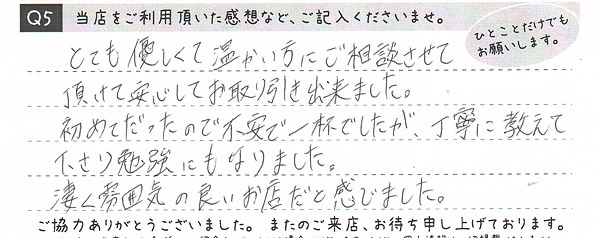 Q5 当店をご利用頂いた感想など、ご記入くださいませ。
ひとことだけでも
お願いします。
とても優しくて温かい方にご相談させて
頂けて安心してお取り引き出来ました。
初めてだったので不安で一杯でしたが、丁寧に教えて
下さり勉強にもなりました。
凄く雰囲気の良いお店だと感じました。
ご協力ありがとうございました。 またのご来店、お待ち申し上げております。